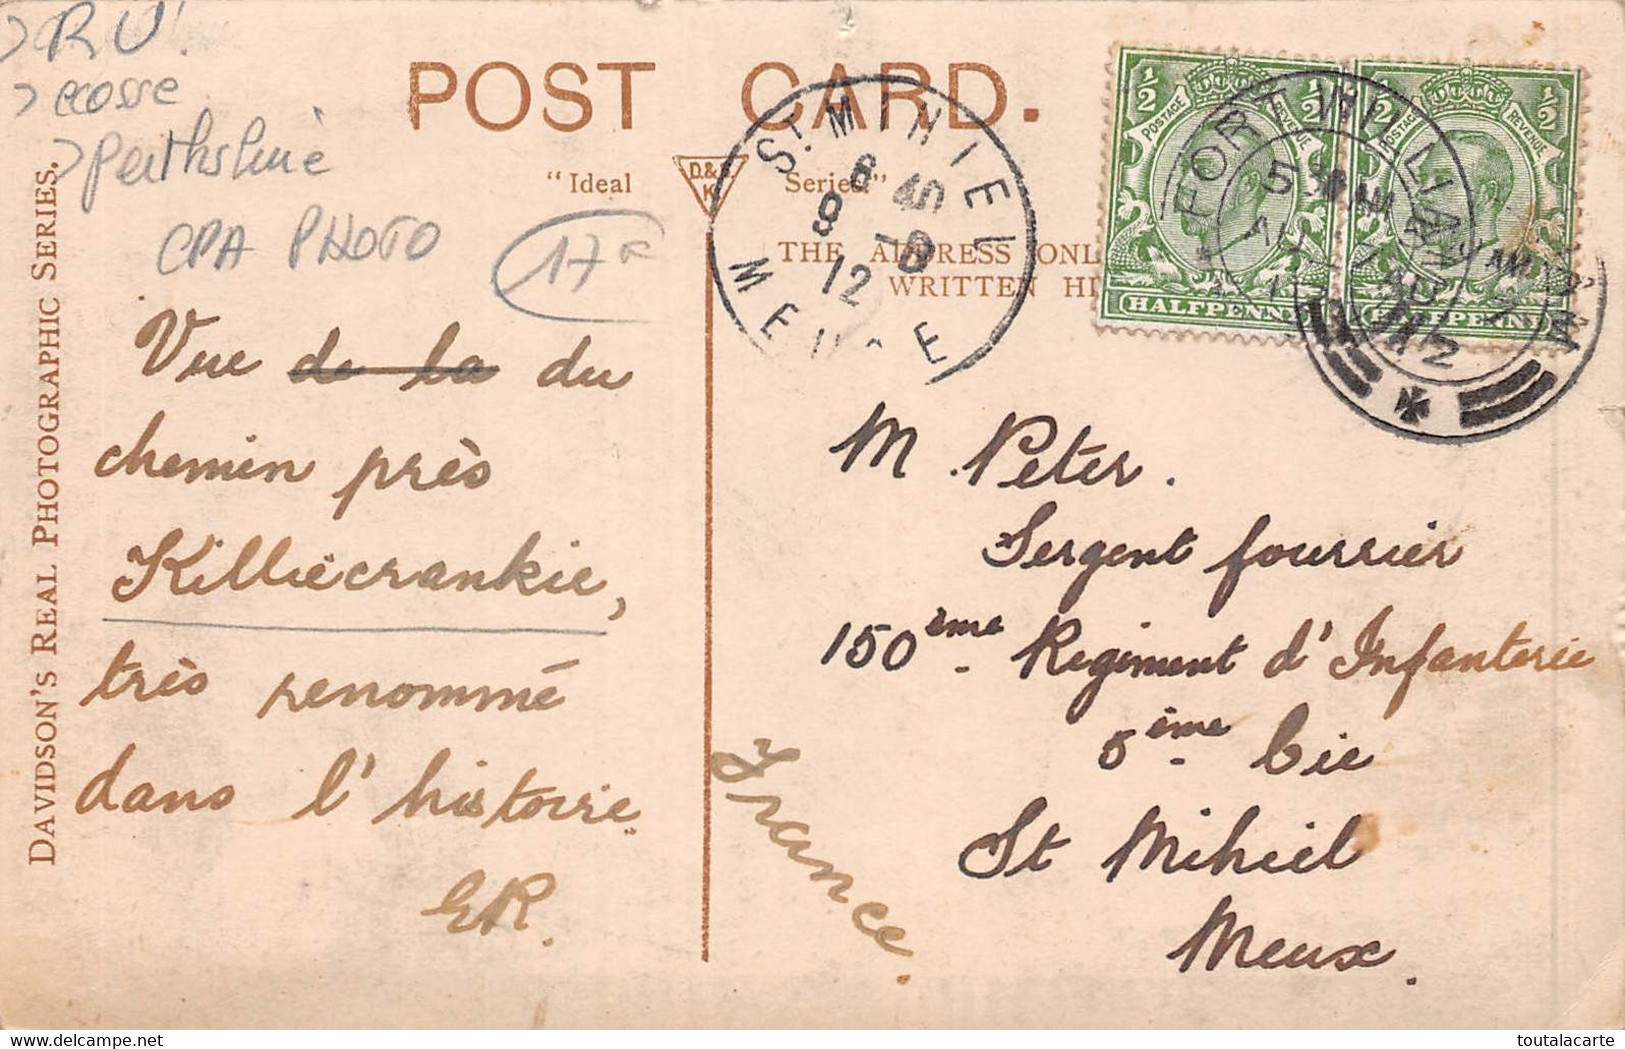 > RU
> ecosse
> perthshire
CPA PHOTO
17€
POST CARD.
"Ideal D.&S. K Series"
THE ADDRESS ONL
WRITTEN HE
DAVIDSON'S REAL PHOTOGRAPHIC SERIES.
½ ½
POSTAGE REVENUE
HALFPENNY
½ ½
POSTAGE REVENUE
HALFPENNY
FORT WILLIAM
ST MIHIEL
8
12
MEUSE
Vue de la du
chemin près
Killiecrankie,
très renommé
dans l'histoire.
ER.
M. Peter.
Sergent fourrier
150ème Regiment d'Infanterie
5ème Cie
St Mihiel
Meux.
France.
toutalacarte